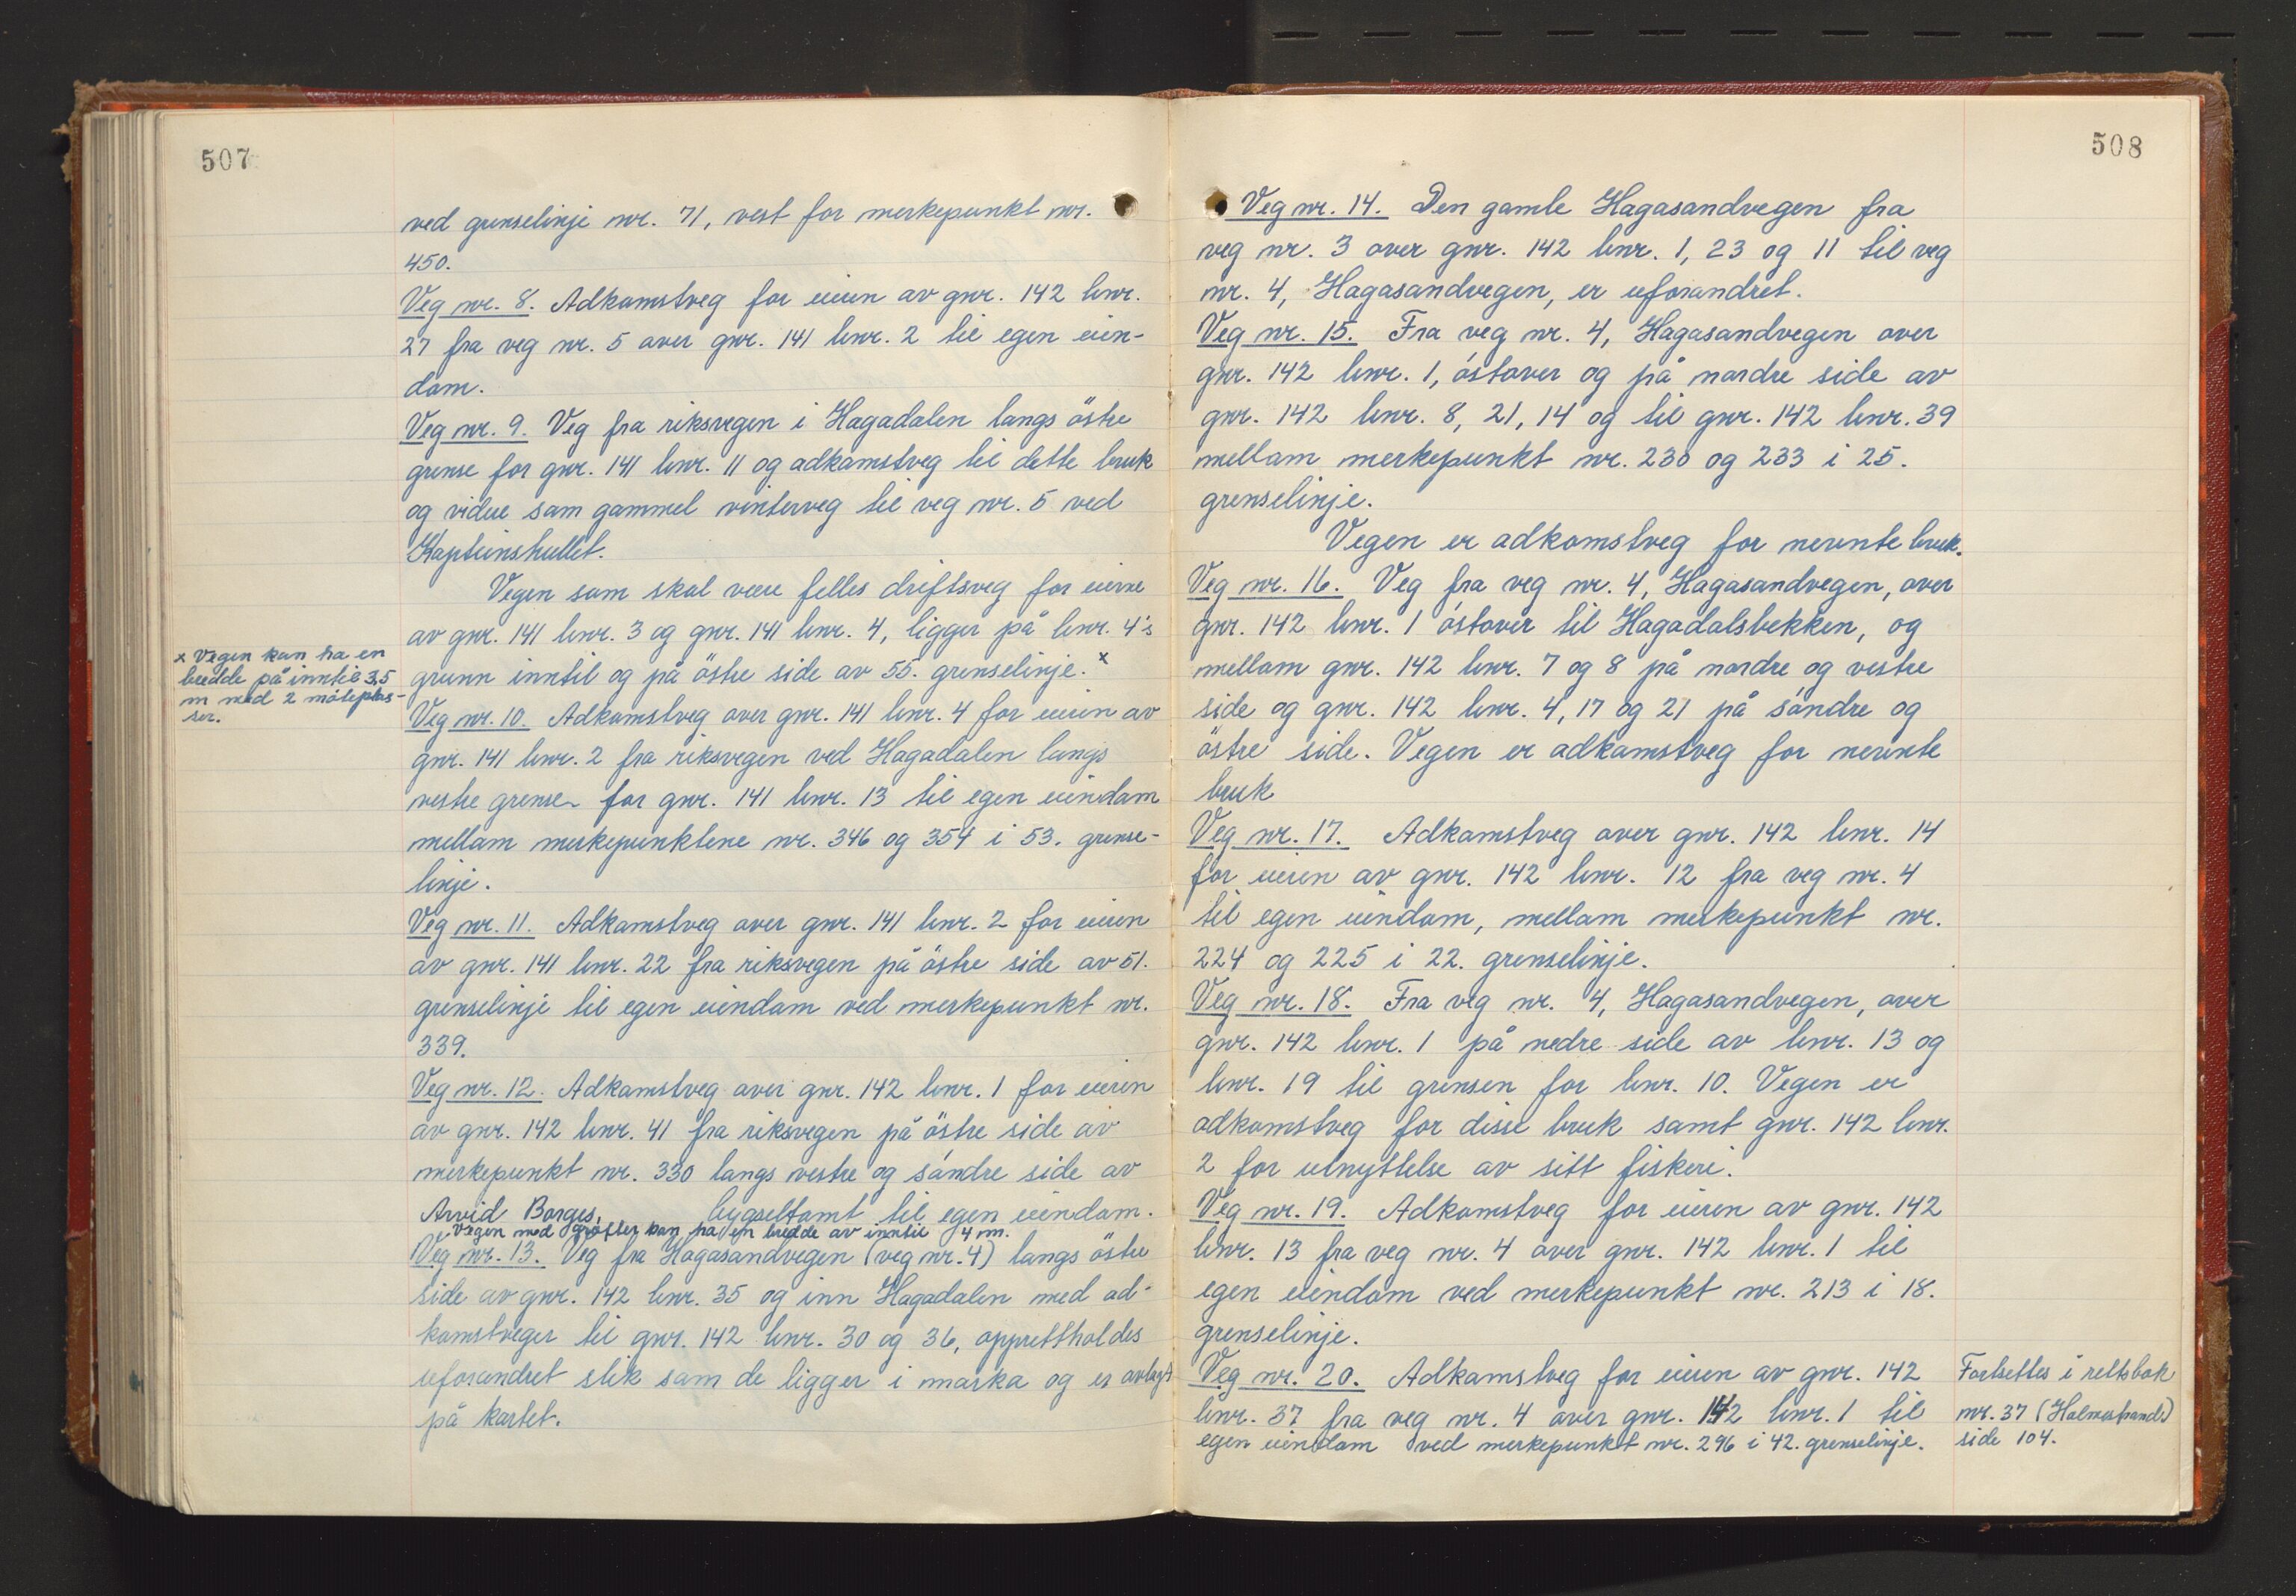 507
ved grenselinje nr. 71, vest for merkepunkt nr.
450.
Veg nr. 8. Adkomstveg for eieren av gnr. 142 bnr.
27 fra veg nr. 5 over gnr. 141 bnr. 2 til egen eien-
dom.
Veg nr. 9. Veg fra riksvegen i Hagadalen langs östre
grense for gnr. 141 bnr. 11 og adkomstveg til dette bruk
og videre som gammel vinterveg til veg nr. 5 ved
Kapteinshullet.
Vegen som skal være felles driftsveg for eierne
av gnr. 141 bnr. 3 og gnr. 141 bnr. 4, ligger på bnr. 4's
grunn inntil og på östre side av 55. grenselinje. x
x Vegen kan ha en
bredde på inntil 3,5
m med 2 möteplas-
ser.
Veg nr. 10. Adkomstveg over gnr. 141 bnr. 4 for eieren av
gnr. 141 bnr. 2 fra riksvegen ved Hagadalen langs
vestre grense for gnr. 141 bnr. 13 til egen eiendom
mellom merkepunktene nr. 346 og 354 i 53. grense-
linje.
Veg nr. 11. Adkomstveg over gnr. 141 bnr. 2 for eieren
av gnr. 141 bnr. 22 fra riksvegen på östre side av 51.
grenselinje til egen eiendom ved merkepunkt nr.
339.
Veg nr. 12. Adkomstveg over gnr. 142 bnr. 1 for eieren
av gnr. 142 bnr. 41 fra riksvegen på östre side av
merkepunkt nr. 330 langs vestre og söndre side av
Arvid Borges, bygseltomt til egen eiendom.
Vegen med gröfter kan ha en bredde av inntil 4 m.
Veg nr. 13. Veg fra Hagasandvegen (veg nr. 4) langs östre
side av gnr. 142 bnr. 35 og inn Hagadalen med ad-
komstveger til gnr. 142 bnr. 30 og 36, opprettholdes
uforandret slik som de ligger i marka og er avlagt
på kartet.
508
Veg nr. 14. Den gamle Hagasandvegen fra
veg nr. 3 over gnr. 142 bnr. 1, 23 og 11 til veg
nr. 4, Hagasandvegen, er uforandret.
Veg nr. 15. Fra veg nr. 4, Hagasandvegen over
gnr. 142 bnr. 1, östover og på nordre side av
gnr. 142 bnr. 8, 21, 14 og til gnr. 142 bnr. 39
mellom merkepunkt nr. 230 og 233 i 25.
grenselinje.
Vegen er adkomstveg for nevnte bruk.
Veg nr. 16. Veg fra veg nr. 4, Hagasandvegen, over
gnr. 142 bnr. 1 östover til Hagadalsbekken, og
mellom gnr. 142 bnr. 7 og 8 på nordre og vestre
side og gnr. 142 bnr. 4, 17 og 21 på söndre og
östre side. Vegen er adkomstveg for nevnte
bruk
Veg nr. 17. Adkomstveg over gnr. 142 bnr. 14
for eieren av gnr. 142 bnr. 12 fra veg nr. 4
til egen eiendom, mellom merkepunkt nr.
224 og 225 i 22. grenselinje.
Veg nr. 18. Fra veg nr. 4, Hagasandvegen, over
gnr. 142 bnr. 1 på nedre side av bnr. 13 og
bnr. 19 til grensen for bnr. 10. Vegen er
adkomstveg for disse bruk samt gnr. 142 bnr.
2 for utnyttelse av sitt fiskeri.
Veg nr. 19. Adkomstveg for eieren av gnr. 142
bnr. 13 fra veg nr. 4 over gnr. 142 bnr. 1 til
egen eiendom ved merkepunkt nr. 213 i 18.
grenselinje.
Veg nr. 20. Adkomstveg for eieren av gnr. 142
bnr. 37 fra veg nr. 4 over gnr. 142 bnr. 1 til
egen eiendom ved merkepunkt nr. 296 i 42. grenselinje.
Fortsettes i rettsbok
nr. 37 (Holmestrand)
side 104.